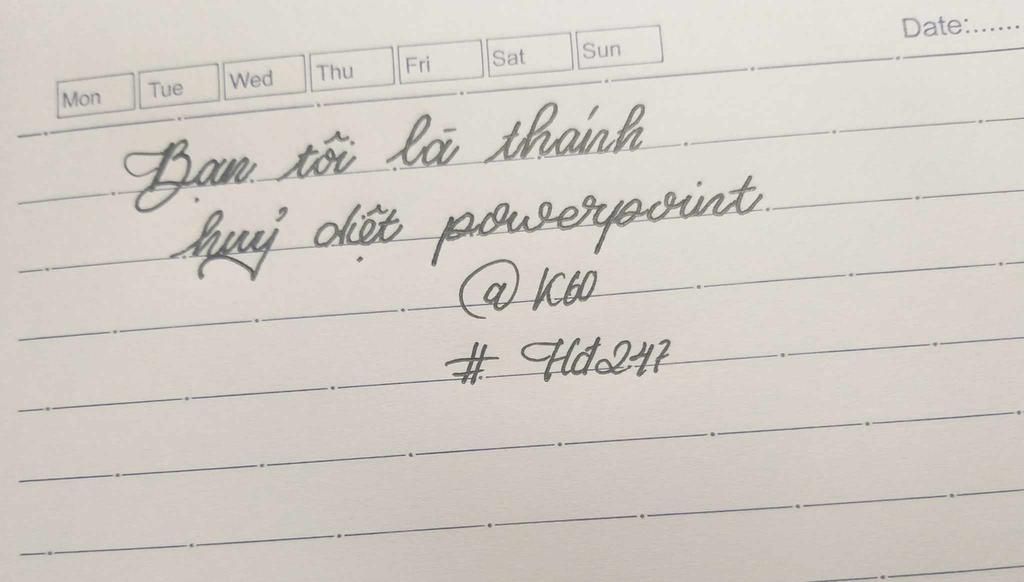 Date:.......
Mon Tue Wed Thu Fri Sat Sun
Bạn tôi là thánh
huỷ diệt powerpoint
@K60
# Hd247